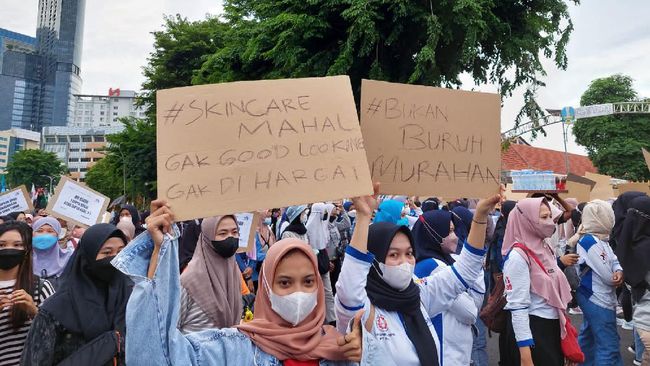 #SKINCARE
MAHAL
GAK GOOD LOOKING
GAK DI HARGAI
#BUKAN
BURUH
MURAHAN